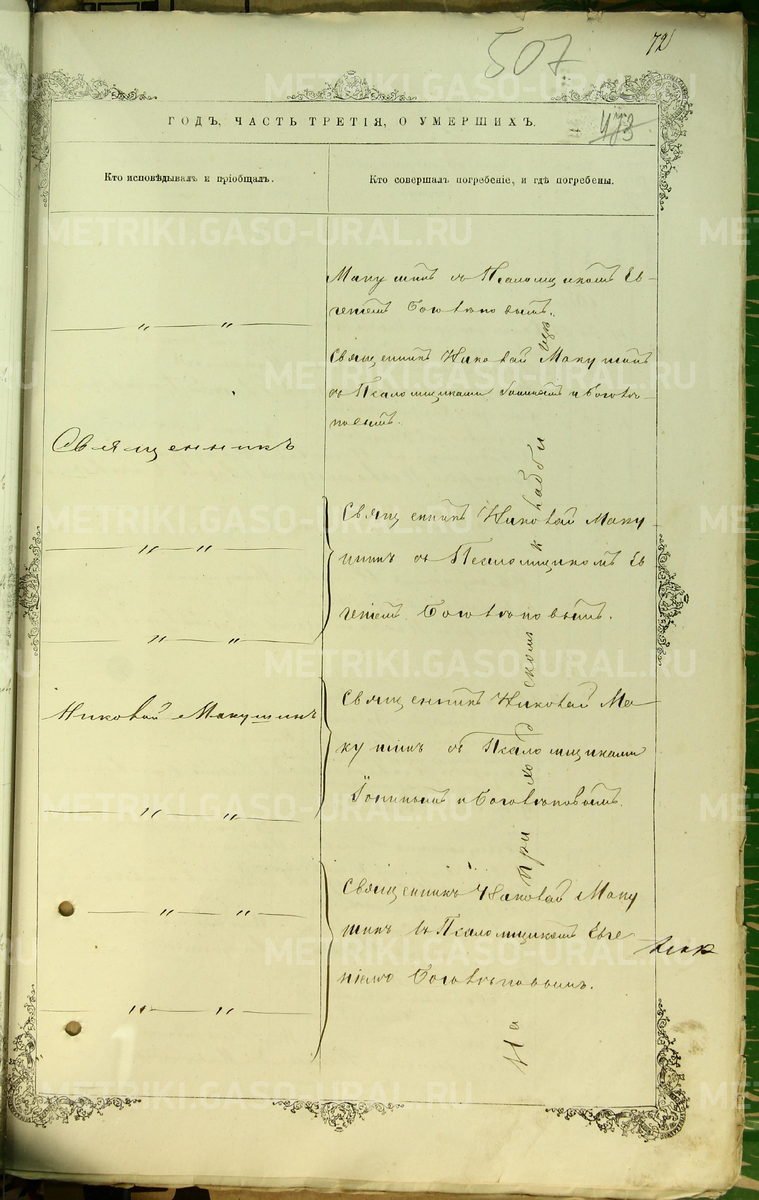 507
72
ГОДЪ, ЧАСТЬ ТРЕТІЯ, О УМЕРШИХЪ.
473
Кто исповѣдывалъ и пріобщалъ.
Кто совершалъ погребеніе, и гдѣ погребены.
Макушинъ съ Псаломщикомъ Ев-
геніемъ Боголѣповымъ.
Священникъ Николай Макушинъ
съ Псаломщиками и Боголѣ-
повымъ.
Священникъ
Священникъ Николай Маку-
шинъ съ Псаломщикомъ Ев
геніемъ Боголѣповымъ.
Николай Макушинъ
Священникъ Николай Ма-
кушинъ съ Псаломщиками
и Боголѣповымъ.
Священникъ Николай Маку
шинъ съ Псаломщикомъ Евге
ніемъ Боголѣповымъ.
На приходскомъ кладби
щѣ
METRIKI.GASO-URAL.RU